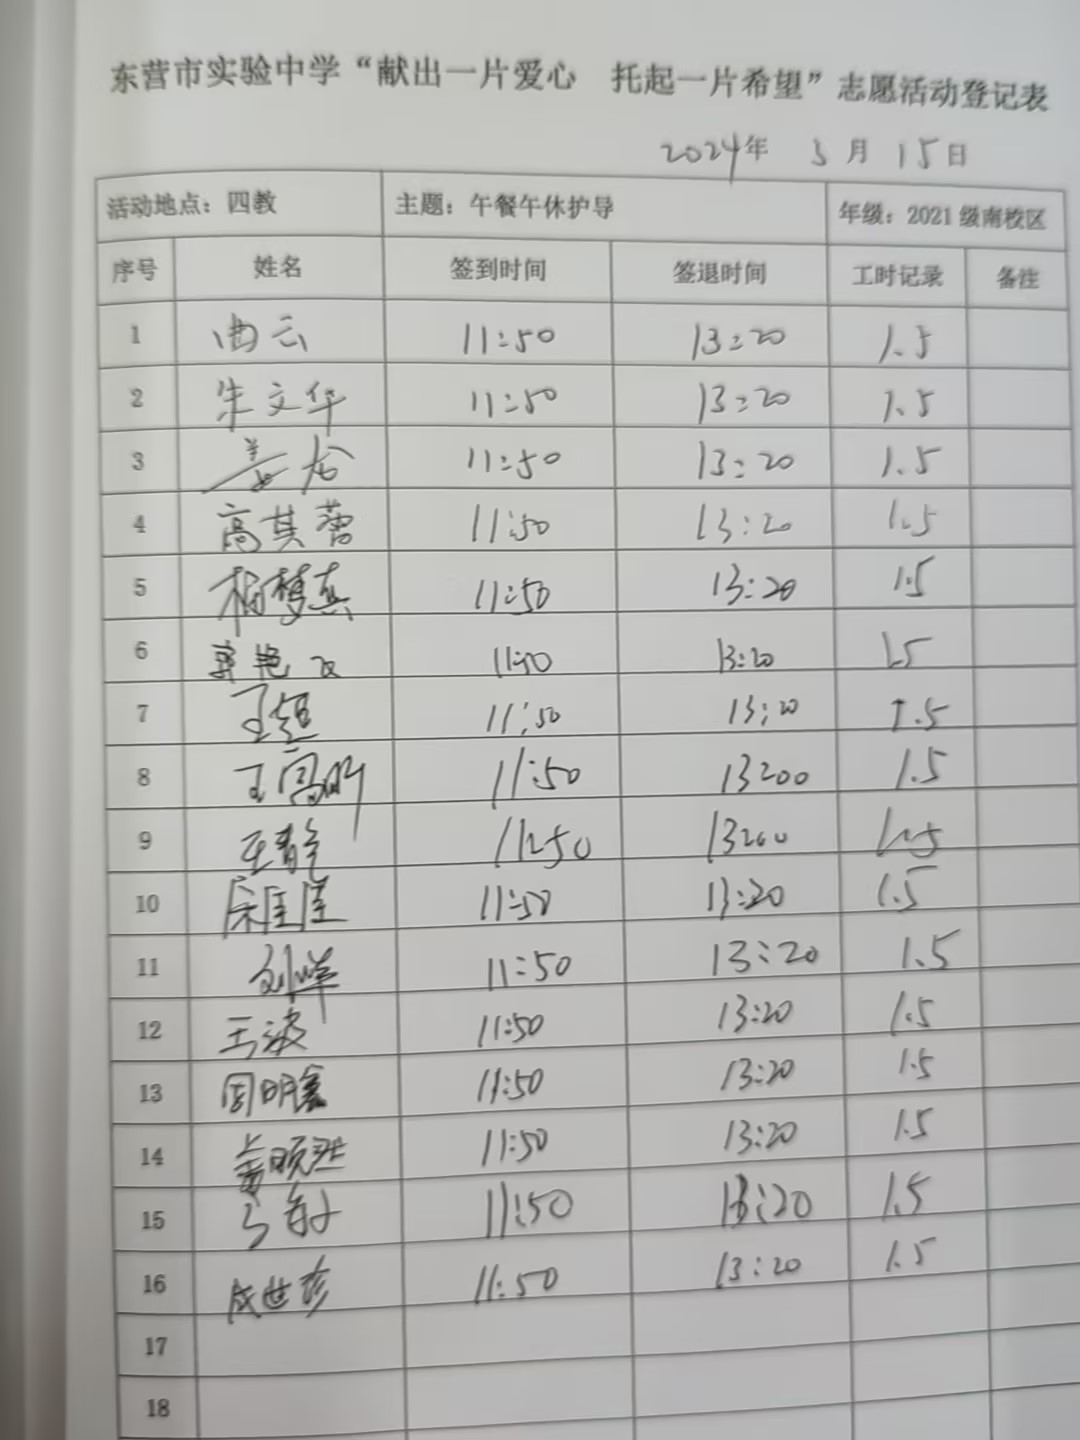 东营市实验中学“献出一片爱心 托起一片希望”志愿活动登记表
2024年 3月 15日
活动地点：四教 主题：午餐午休护导 年级：2021级南校区
序号 姓名 签到时间 签退时间 工时记录 备注
1 曲云 11:50 13:20 1.5
2 朱文华 11:50 13:20 1.5
3 姜龙 11:50 13:20 1.5
4 高其蕾 11:50 13:20 1.5
5 杨梦真 11:50 13:20 1.5
6 郭艳 11:50 13:20 1.5
7 王超 11:50 13:20 1.5
8 王高昕 11:50 13:00 1.5
9 王静 11:50 1.5
10 宋崖崖 11:50 13:20 1.5
11 刘洋 11:50 13:20 1.5
12 王波 11:50 13:20 1.5
13 周明鑫 11:50 13:20 1.5
14 11:50 13:20 1.5
15 11:50 13:20 1.5
16 成世珍 11:50 13:20 1.5
17
18